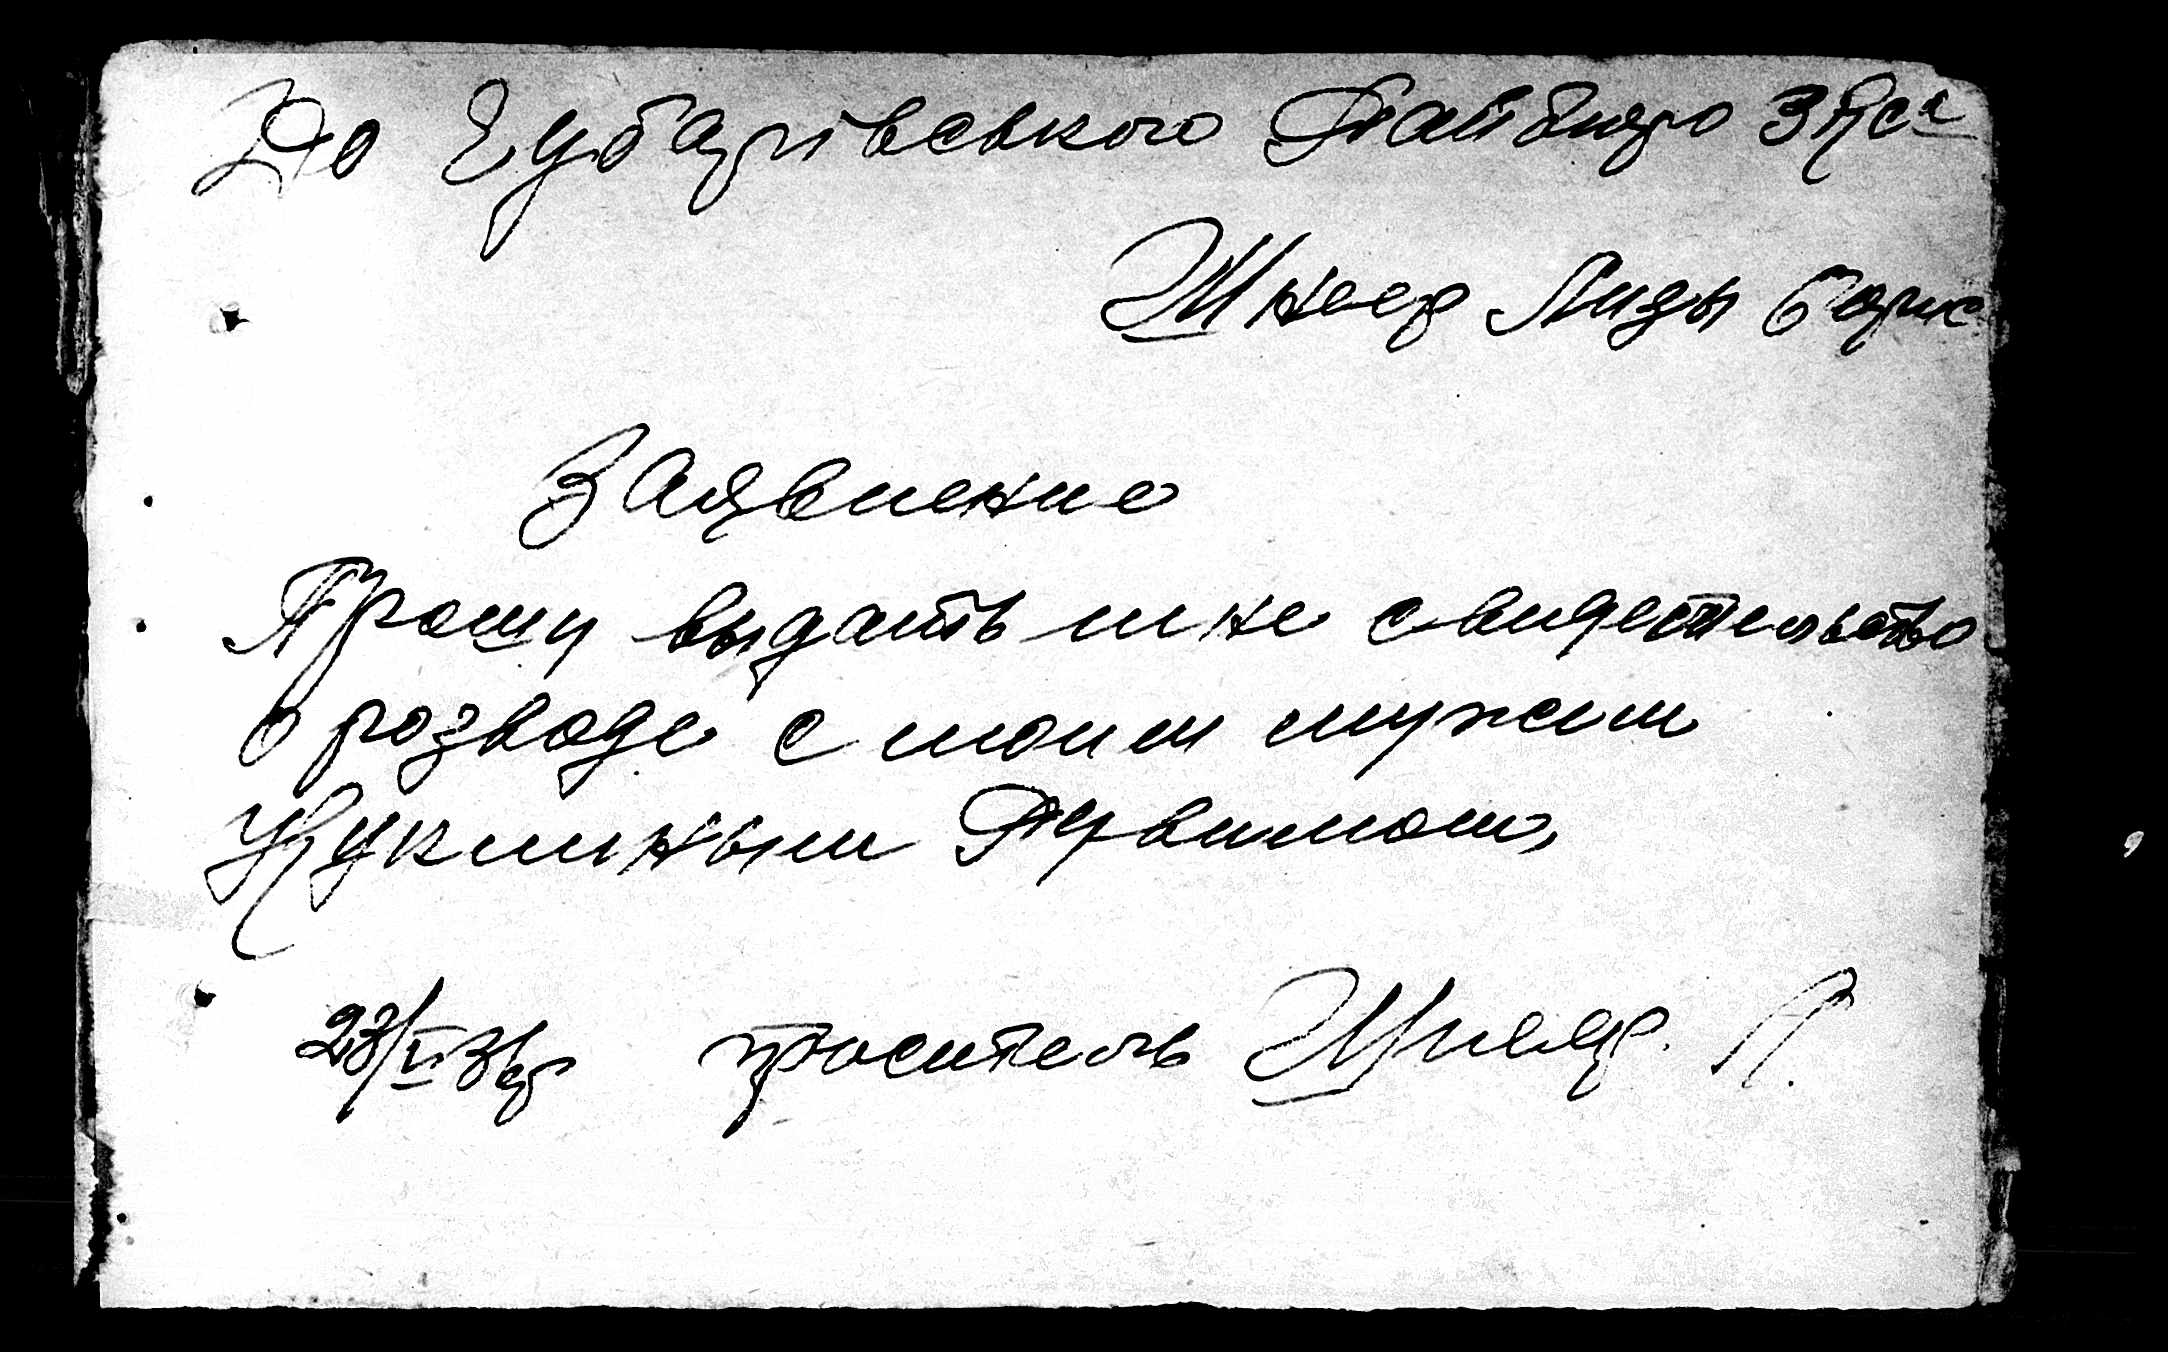 До Губарівського Райбюро ЗАГСа
Шнеер Лизы Борис
Заявление
Прошу выдать мне свидетельство
о розводе с моим мужем
Цукминым Рувимом,
23/VI 36р проситель Шнеер. Л.